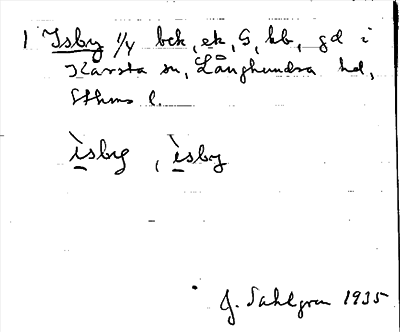 1 Isby 1/4 bck, ek, G, kb, gd i
Kårsta sn, Långhundra hd,
Sthms l.
ìsby, ìsby
J. Sahlgren 1935